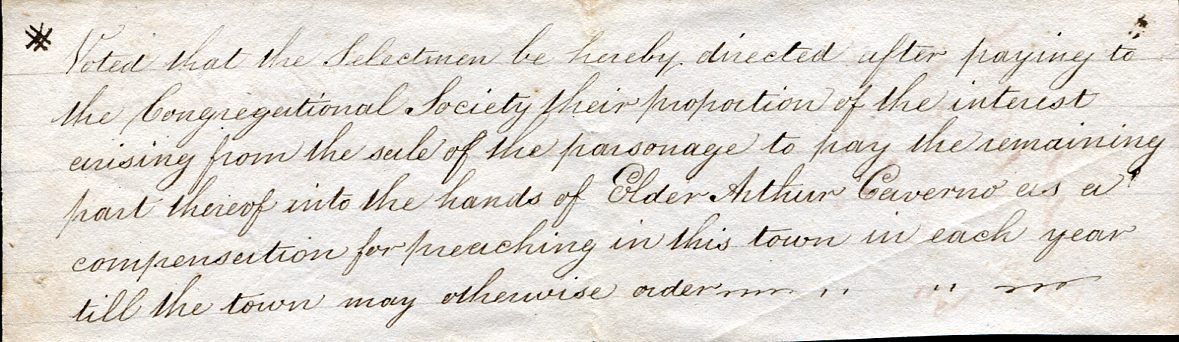 Voted that the Selectmen be hereby directed after paying to
the Congregational Society their proportion of the interest
arising from the sale of the parsonage to pay the remaining
part thereof into the hands of Elder Arthur Caverno as a
compensation for preaching in this town in each year
till the town may otherwise order